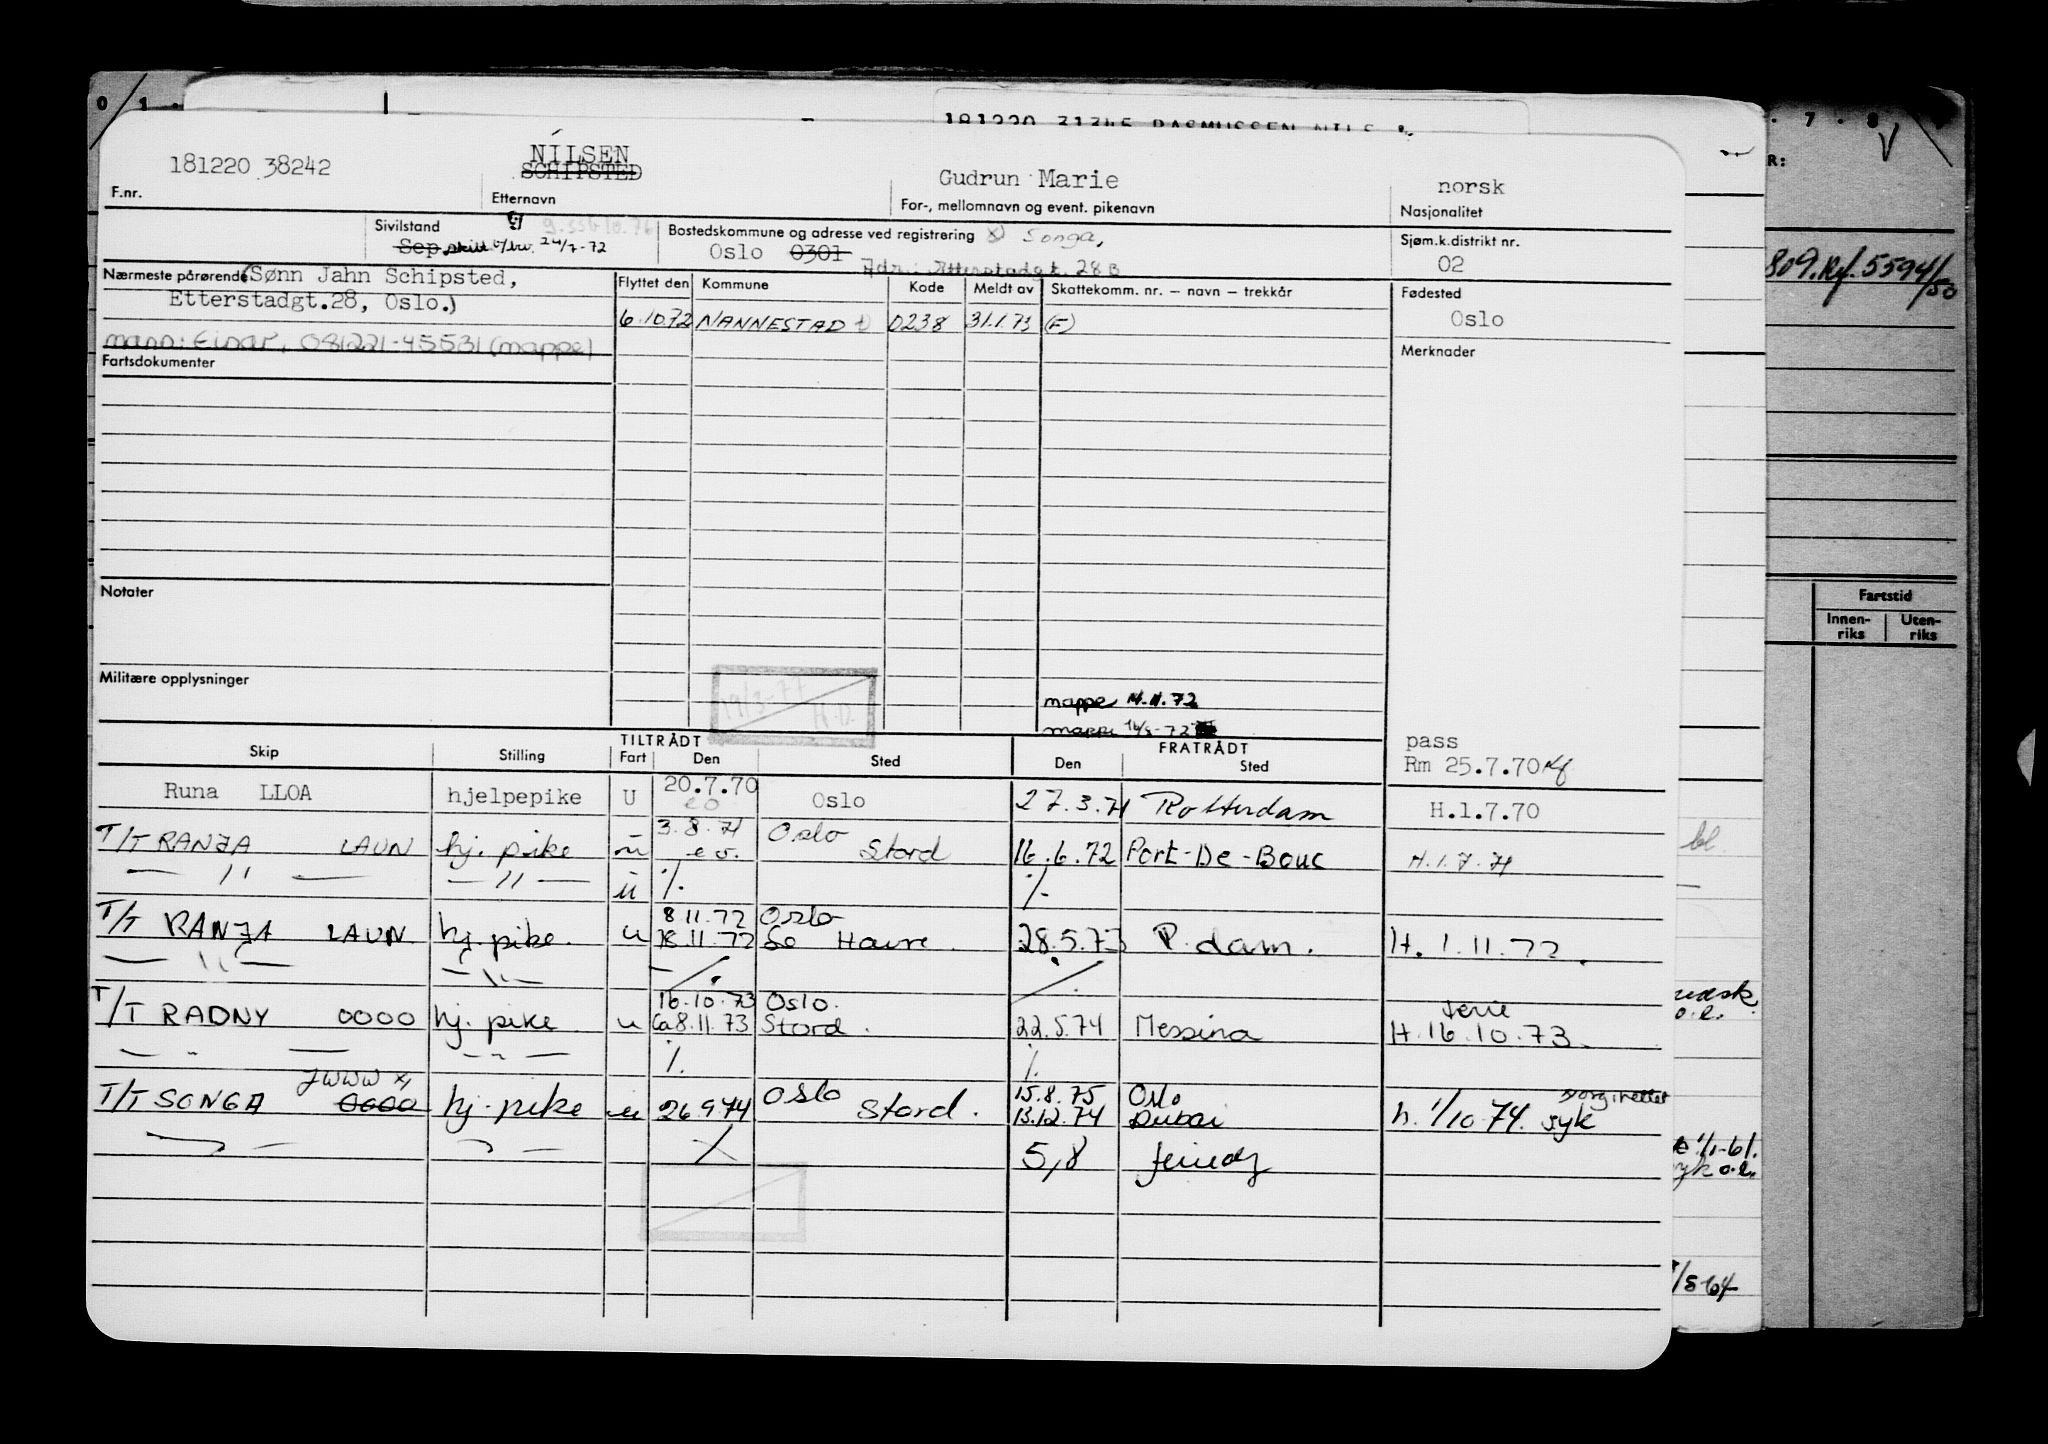 181220 31345 RASMUSSEN NILS
181220 38242
NILSEN
SCHIPSTED
Gudrun Marie
norsk
F.nr.
Etternavn
For-, mellomnavn og event. pikenavn
Nasjonalitet
Sivilstand
g
Bostedskommune og adresse ved registrering
Songa,
Sjøm.k.distrikt nr.
Sep. skilt 24/7-72
Oslo 0301
Adr.: Etterstadgt. 28 B
02
Nærmeste pårørende (Sønn Jahn Schipsted,
Etterstadgt.28, Oslo.)
mann: Einar, 081221-45531 (mappe)
Flyttet den
Kommune
Kode
Meldt av
Skattekomm. nr. – navn – trekkår
Fødested
6.10.72 NANNESTAD 0238 31.1.73 (F)
Oslo
Fartsdokumenter
Merknader
Notater
Militære opplysninger
19/3-77
H.D.
mappe 14.11.72
mappe
pass
Rm 25.7.70
TILTRÅDT
FRATRÅDT
Skip
Stilling
Fart
Den
Sted
Den
Sted
Runa LLOA hjelpepike U 20.7.70 Oslo 27.3.71 Rotterdam H.1.7.70
3.8.71 Oslo
T/T RANJA LAUN hj. pike u Stord 16.6.72 Port-De-Bouc H.1.7.71
— " — — " — u ./. ./.
8.11.72 Oslo
T/T RANJA LAUN hj. pike. u 18.11.72 Le Havre. 28.5.73 R.dam. H. 1.11.72.
— " — — " — ./. ./.
16.10.73 Oslo. Ferie
T/T RADNY OOOO hj. pike u Ca 8.11.73 Stord. 22.5.74 Messina H.16.10.73.
— " — — " — ./. ./.
JWWW x) Oslo 15.8.75 Oslo
T/T SONGA OOOO hj. pike u 26.9.74 Stord. 13.12.74 Dubai h. 1/10-74. syk
5,8
R:
809. Rf. 5594/50
Fartstid
Innen-
riks
Uten-
riks
bl.
1/1-61.
syk o.l.
/5 64